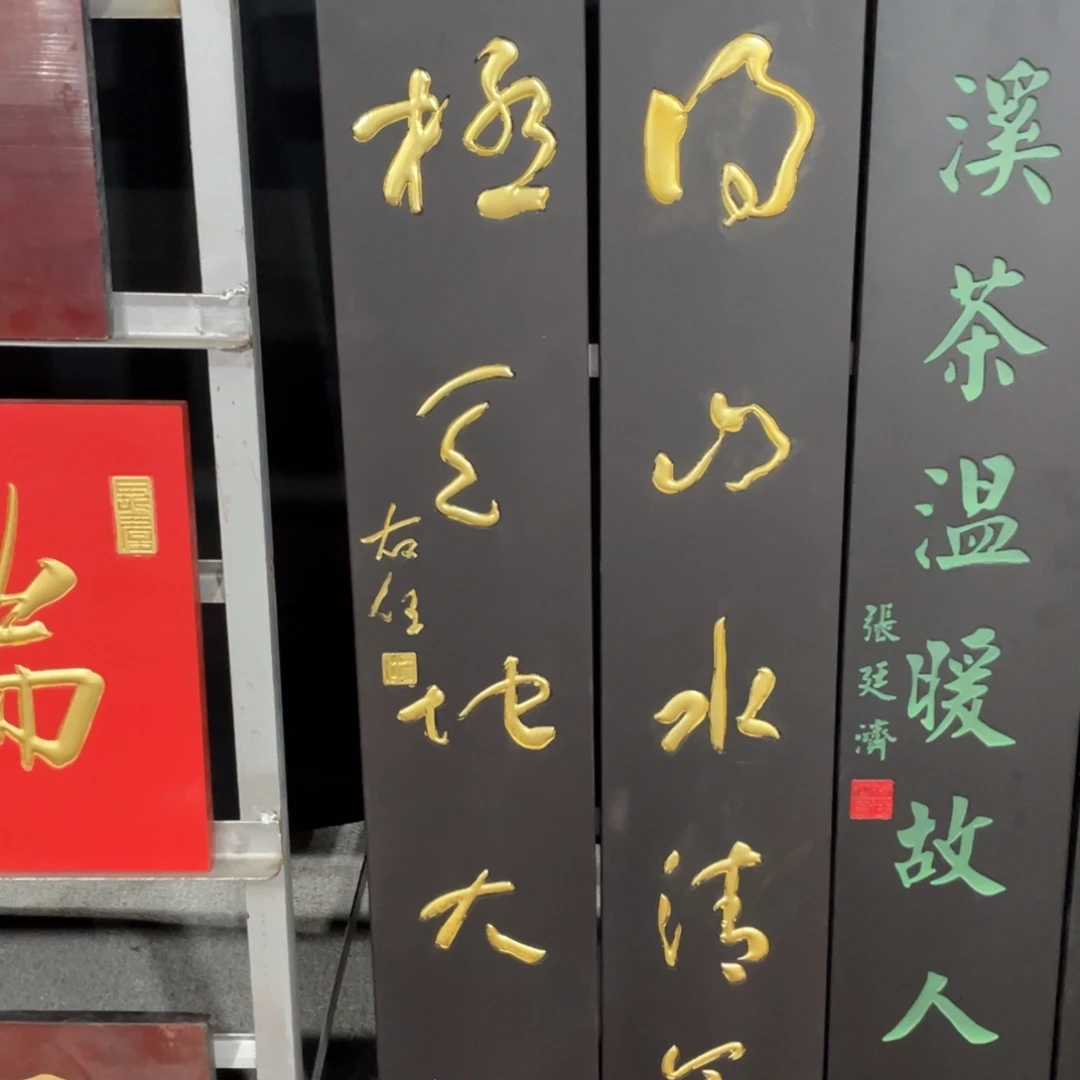 溪茶温暖故人
張廷濟
得山水清
極天地大
右任